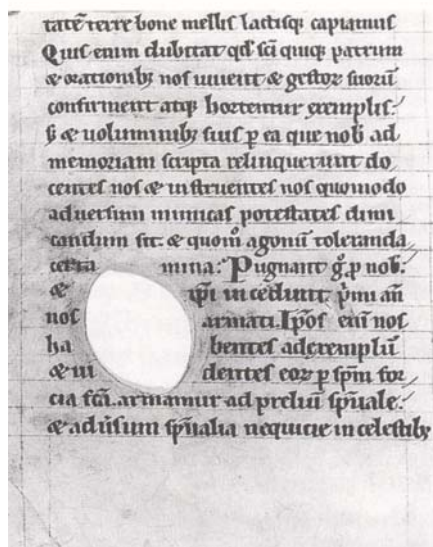 tatē terre bone mellis lactisq; capiamus
Quis enim dubitat qd̄ sc̄i quiq; patrum
& orationib; nos iuuent & gestoꝝ suorū
confirment atq; hortentur exemplis.
s; & uoluminib; suis p ea que nob̄ ad
memoriam scripta relinquerunt do
centes nos & instruentes nos quomodo
aduersum inimicas potestates dimi
candum sit. & quom̊ agonū toleranda
certa mina. Pugnant g̊ p nob̄.
& ip̄i incedunt p̄mi an
nos armati. Ip̄os eni nos
ha bentes ad exemplū
& ui dentes eoꝝ p sp̄m for
cia fc̄a. armamur ad preliū sp̄uale.
& aduˀsum sp̄ualia nequicie in celestib;